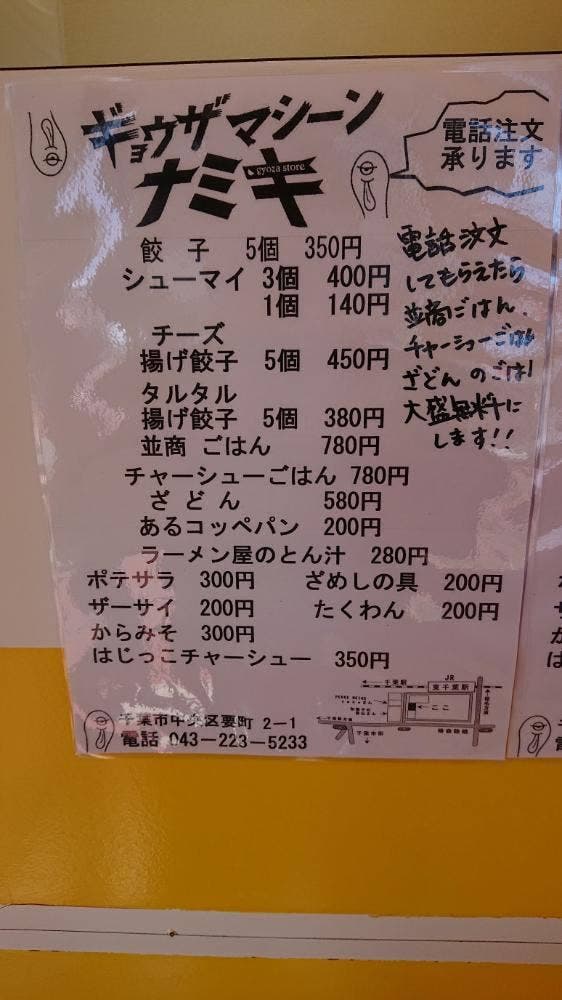 ギョウザマシーン
ナミキ
gyoza store
電話注文
承ります
餃 子 5個 350円
シューマイ 3個 400円
1個 140円
チーズ
揚げ餃子 5個 450円
タルタル
揚げ餃子 5個 380円
並商 ごはん 780円
チャーシューごはん 780円
ざ ど ん 580円
あるコッペパン 200円
ラーメン屋のとん汁 280円
ポテサラ 300円 ざめしの具 200円
ザーサイ 200円 たくわん 200円
からみそ 300円
はじっこチャーシュー 350円
電話注文
してもらえたら
並商ごはん、
チャーシューごはん
ざどん のごはん
大盛無料に
します!!
千葉市中央区要町 2−1
電話 043−223−5233
千葉駅
JR
東千葉駅
ここ